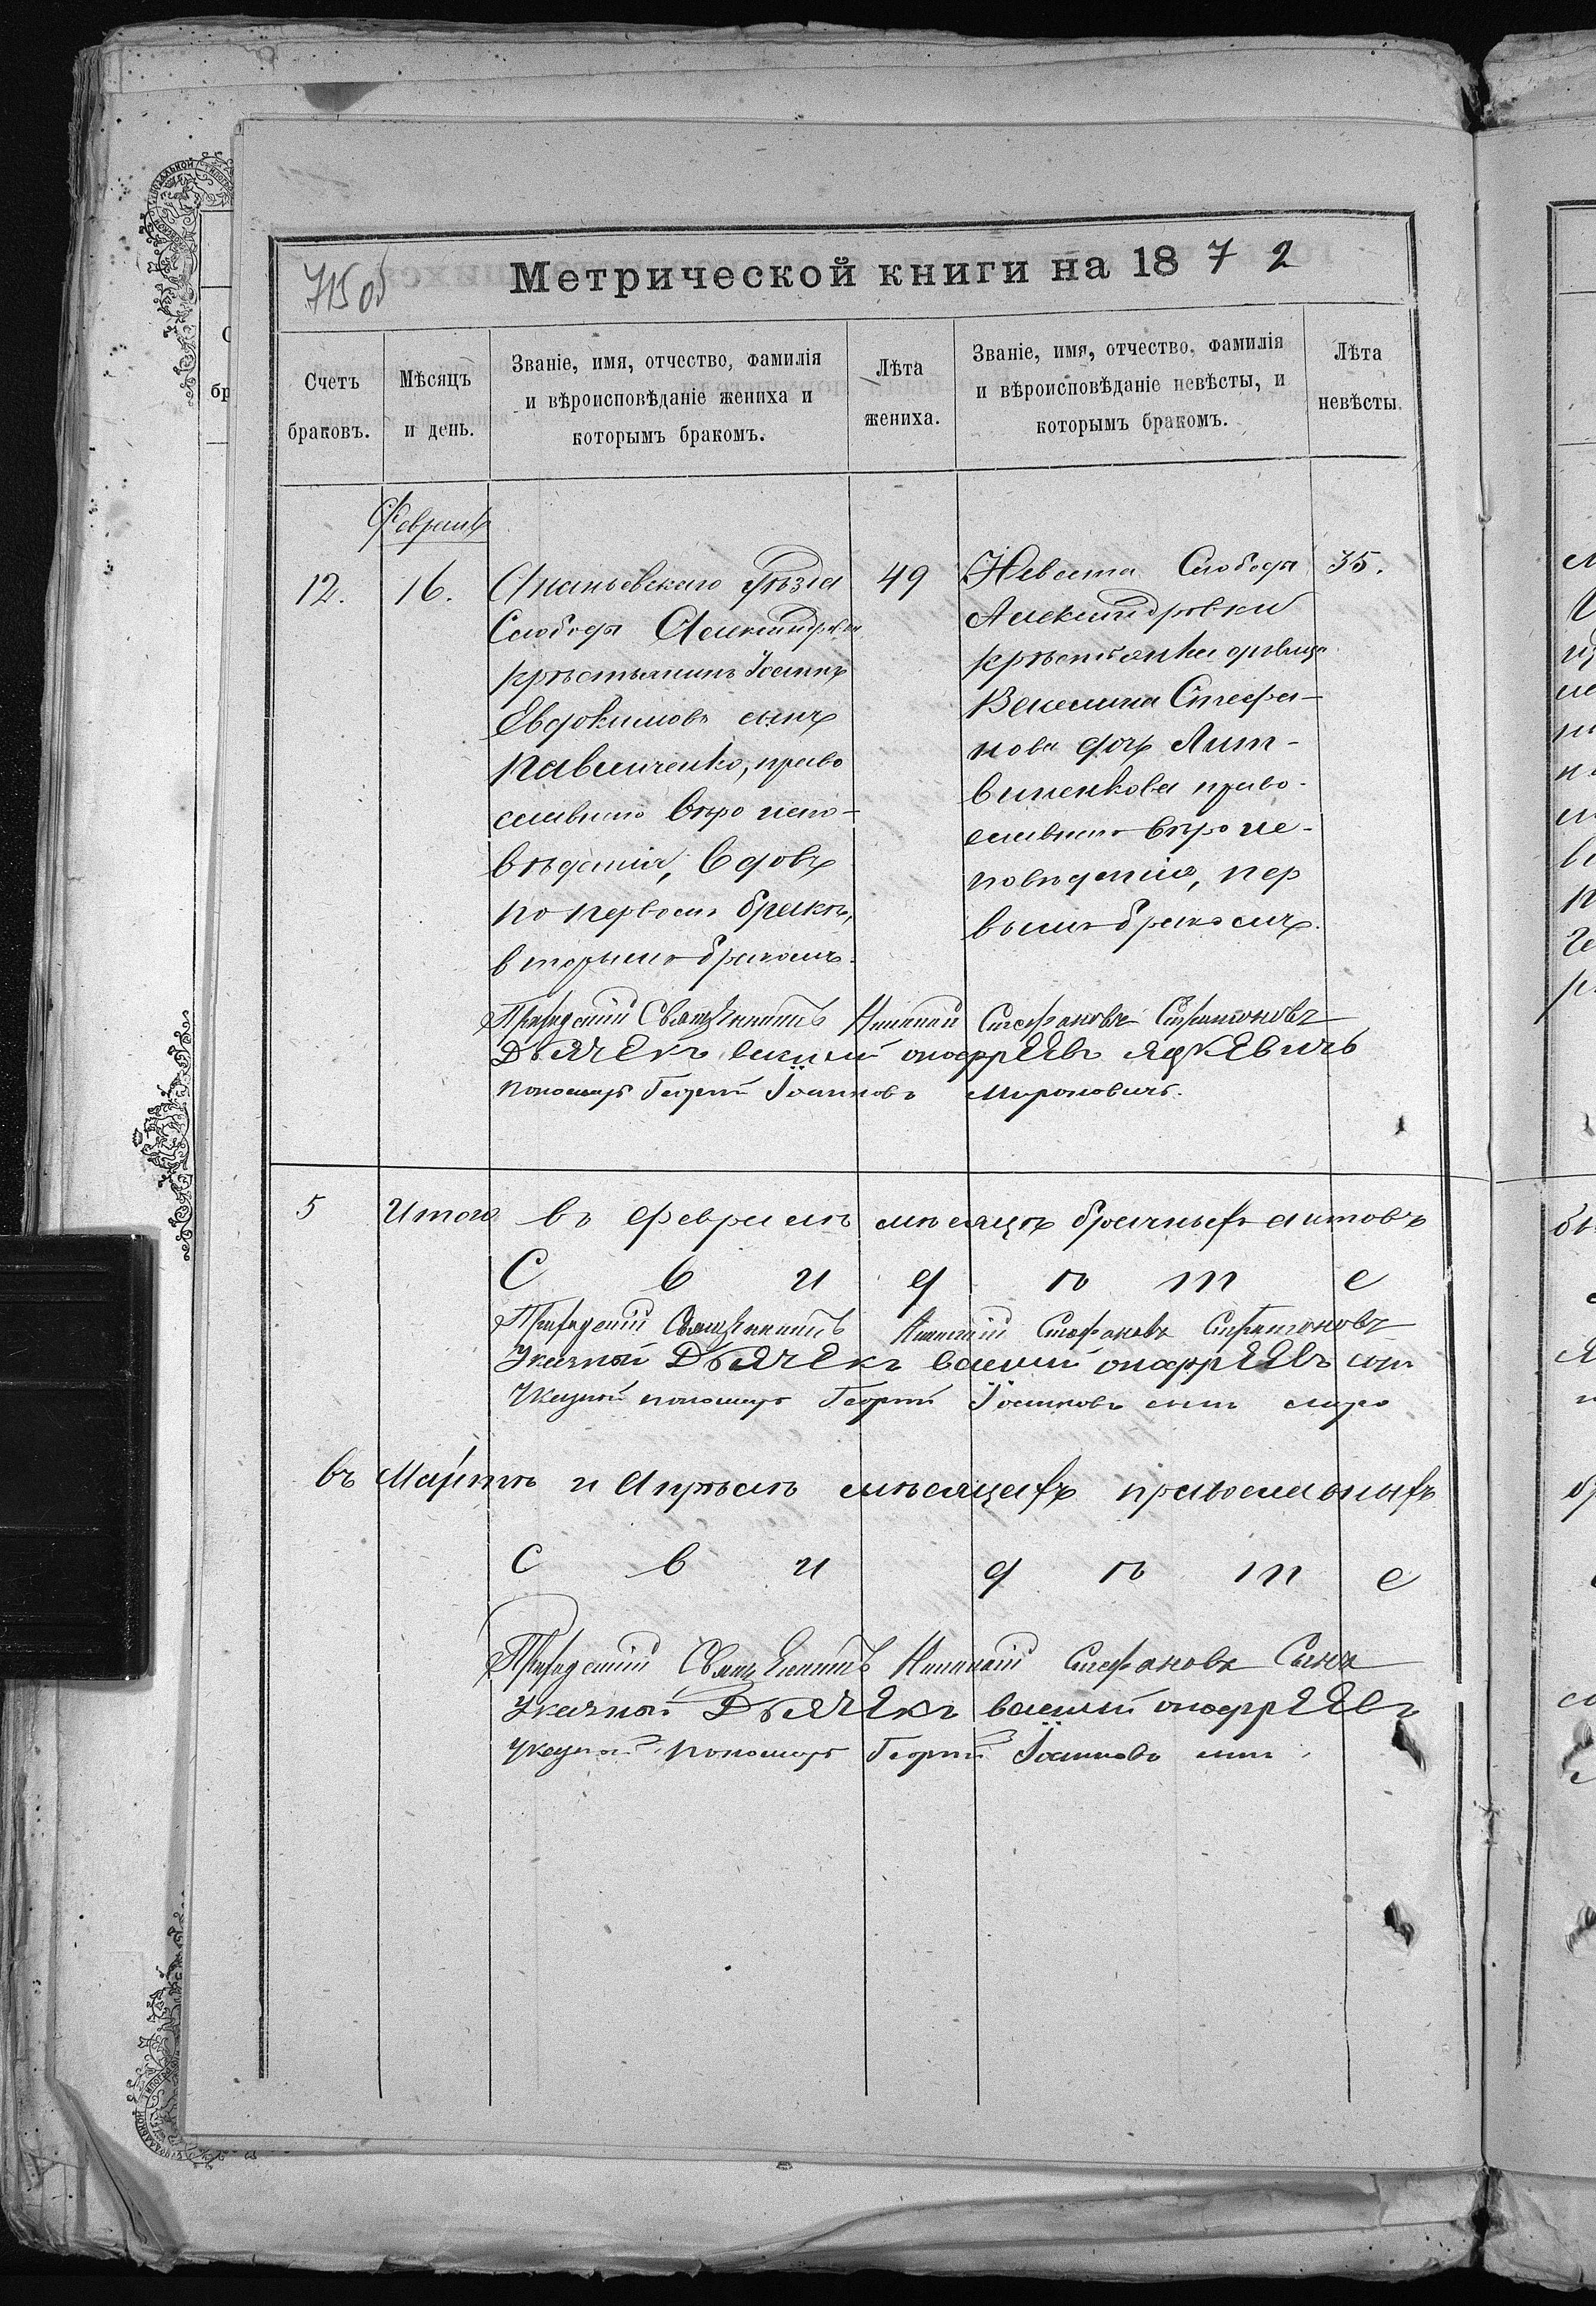 715об
Метрической книги на 1872
Счетъ браковъ.
Мѣсяцъ и день.
Званіе, имя, отчество, фамилія
и вѣроисповѣданіе жениха и
которымъ бракомъ.
Лѣта жениха.
Званіе, имя, отчество, фамилія
и вѣроисповѣданіе невѣсты, и
которымъ бракомъ.
Лѣта невѣсты.
Февраль
12.
16.
Ананьевскаго Уѣзда
Слободы Александровки
крѣстьянинъ Іоаннъ
Евдокимовъ сынъ
Савченко, право
славнаго вѣро испо-
вѣданія, вдовъ
по первомъ бракѣ,
вторымъ бракомъ.
49
Невеста Слободы
Александровки
крѣстьянка дѣвица
Стефа-
нова дочь Лит-
виненкова право-
славнаго вѣро ис-
повѣданія, пер
вымъ бракомъ.
35.
Приходскій Священникъ Стефановъ
Дьячекъ Василій Онофрѣевъ Яцкевичъ
Пономарь Георгій Іоанновъ Мироновичъ.
5
Итого въ Февралѣ мѣсяцѣ брачныхъ актовъ
С в и д ѣ т е
Приходскій Священникъ Стефановъ
Указной Дьячекъ Василій Онофрѣевъ сын
Указной пономарь Георгій Іоанновъ сынъ Миро
въ Мартѣ и Апрѣлѣ мѣсяцахъ православныхъ
С в и д ѣ т е
Приходскій Священникъ Стефановъ Сынъ
Указной Дьячекъ Василій Онофрѣевъ
Указной Пономарь Георгій Іоанновъ сынъ